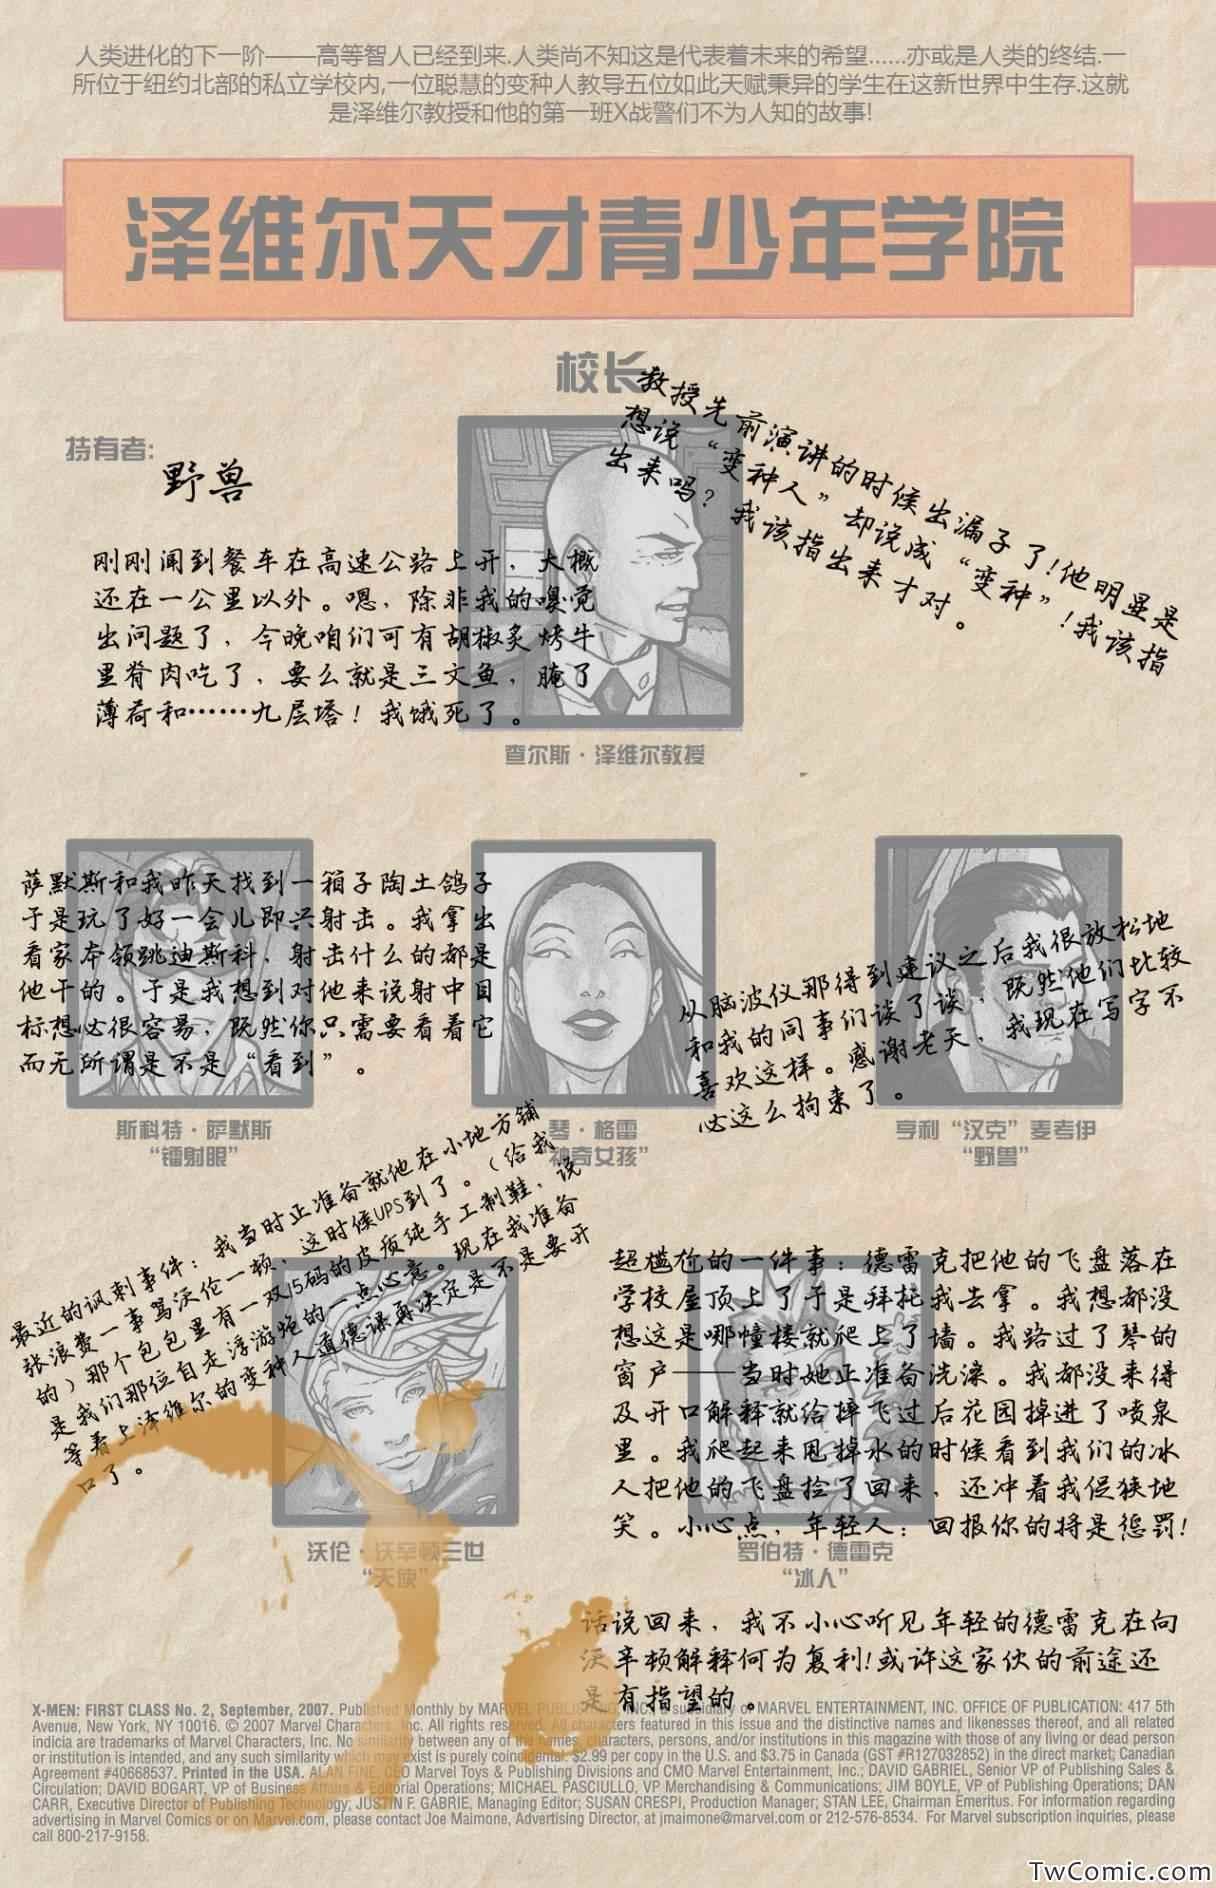 人类进化的下一阶——高等智人已经到来.人类尚不知这是代表着未来的希望......亦或是人类的终结.一
所位于纽约北部的私立学校内,一位聪慧的变种人教导五位如此天赋秉异的学生在这新世界中生存.这就
是泽维尔教授和他的第一班X战警们不为人知的故事!
泽维尔天才青少年学院
校长
持有者:
野兽
教授先前演讲的时候出漏子了!他明显是
想说“变种人”却说成“变种”!我该指
出来吗?我该指出来才对。
刚刚闻到餐车在高速公路上开，大概
还在一公里以外。嗯，除非我的嗅觉
出问题了，今晚咱们可有胡椒炙烤牛
里脊肉吃了，要么就是三文鱼，腌了
薄荷和……九层塔！我饿死了。
查尔斯·泽维尔教授
萨默斯和我昨天找到一箱子陶土鸽子
于是玩了好一会儿即兴射击。我拿出
看家本领跳迪斯科，射击什么的都是
他干的。于是我想到对他来说射中目
标想必很容易，既然你只需要看着它
而无所谓是不是“看到”。
从脑波仪那得到建议之后我很放松地
和我的同事们谈了谈，既然他们比较
喜欢这样。感谢老天，我现在写字不
必这么拘束了。
斯科特·萨默斯
“镭射眼”
琴·格雷
“神奇女孩”
亨利“汉克”麦考伊
“野兽”
最近的讽刺事件：我当时正准备就他在小地方铺
张浪费一事骂沃伦一顿，这时候UPS到了。（给我
的）那个包包里有一双15码的皮质纯手工制鞋，说
是我们那位自走浮游炮的一点心意。现在我准备
等着上泽维尔的变种人道德课再决定是不是要开
口了。
超尴尬的一件事：德雷克把他的飞盘落在
学校屋顶上了于是拜托我去拿。我想都没
想这是哪幢楼就爬上了墙。我路过了琴的
窗户——当时她正准备洗澡。我都没来得
及开口解释就给摔飞过后花园掉进了喷泉
里。我爬起来甩掉水的时候看到我们的冰
人把他的飞盘捡了回来，还冲着我促狭地
笑。小心点，年轻人：回报你的将是惩罚!
沃伦·沃辛顿三世
“天使”
罗伯特·德雷克
“冰人”
话说回来，我不小心听见年轻的德雷克在向
沃辛顿解释何为复利!或许这家伙的前途还
是有指望的。
X-MEN: FIRST CLASS No. 2, September, 2007. Published Monthly by MARVEL PUBLISHING, INC., a subsidiary of MARVEL ENTERTAINMENT, INC. OFFICE OF PUBLICATION: 417 5th
Avenue, New York, NY 10016. © 2007 Marvel Characters, Inc. All rights reserved. All characters featured in this issue and the distinctive names and likenesses thereof, and all related
indicia are trademarks of Marvel Characters, Inc. No similarity between any of the names, characters, persons, and/or institutions in this magazine with those of any living or dead person
or institution is intended, and any such similarity which may exist is purely coincidental. $2.99 per copy in the U.S. and $3.75 in Canada (GST #R127032852) in the direct market; Canadian
Agreement #40668537. Printed in the USA. ALAN FINE, CEO Marvel Toys & Publishing Divisions and CMO Marvel Entertainment, Inc.; DAVID GABRIEL, Senior VP of Publishing Sales &
Circulation; DAVID BOGART, VP of Business Affairs & Editorial Operations; MICHAEL PASCIULLO, VP Merchandising & Communications; JIM BOYLE, VP of Publishing Operations; DAN
CARR, Executive Director of Publishing Technology; JUSTIN F. GABRIE, Managing Editor; SUSAN CRESPI, Production Manager; STAN LEE, Chairman Emeritus. For information regarding
advertising in Marvel Comics or on Marvel.com, please contact Joe Maimone, Advertising Director, at jmaimone@marvel.com or 212-576-8534. For Marvel subscription inquiries, please
call 800-217-9158.
TwComic.com